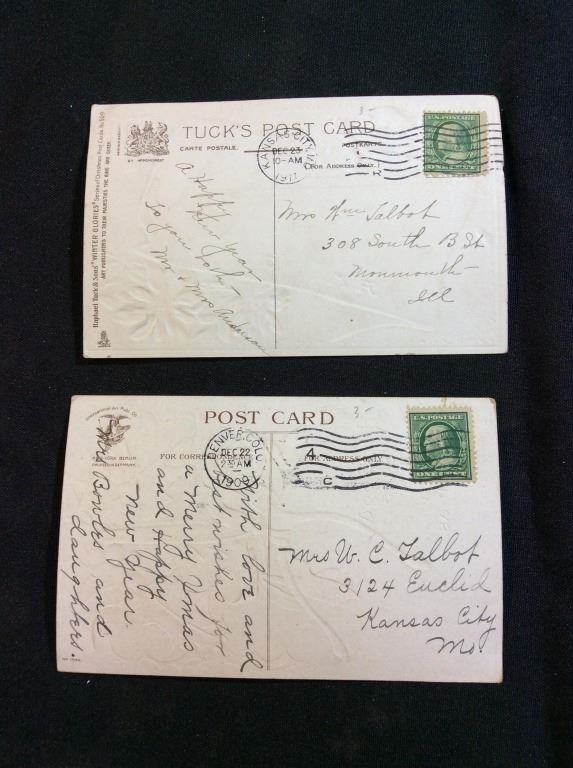 Raphael Tuck & Sons' "WINTER GLORIES" Series of Christmas Post Cards No. 509
ART PUBLISHERS TO THEIR MAJESTIES THE KING AND QUEEN
BY APPOINTMENT
TUCK'S POST CARD
CARTE POSTALE.
POSTKARTE
(FOR ADDRESS ONLY.)
KANSAS CITY, M
DEC 23
10-AM
1911
R
U.S. POSTAGE
ONE CENT
3-
A Happy
New Year
to you both
Mr & Mrs Anderson
Mrs Wm Talbot
308 South B St
Monmouth
Ill
International Art Publ. Co.
NEW YORK BERLIN
PRINTED IN GERMANY
POST CARD
FOR CORRESPONDENCE
FOR ADDRESS ONLY
DENVER, COLO
DEC 22
AM
1909
4
C
U.S. POSTAGE
ONE CENT
3-
With love and
best wishes for
a Merry Xmas
and Happy
New Year.
Mrs Bowles and
daughters.
Mrs W. C. Talbot
3124 Euclid
Kansas City
Mo.